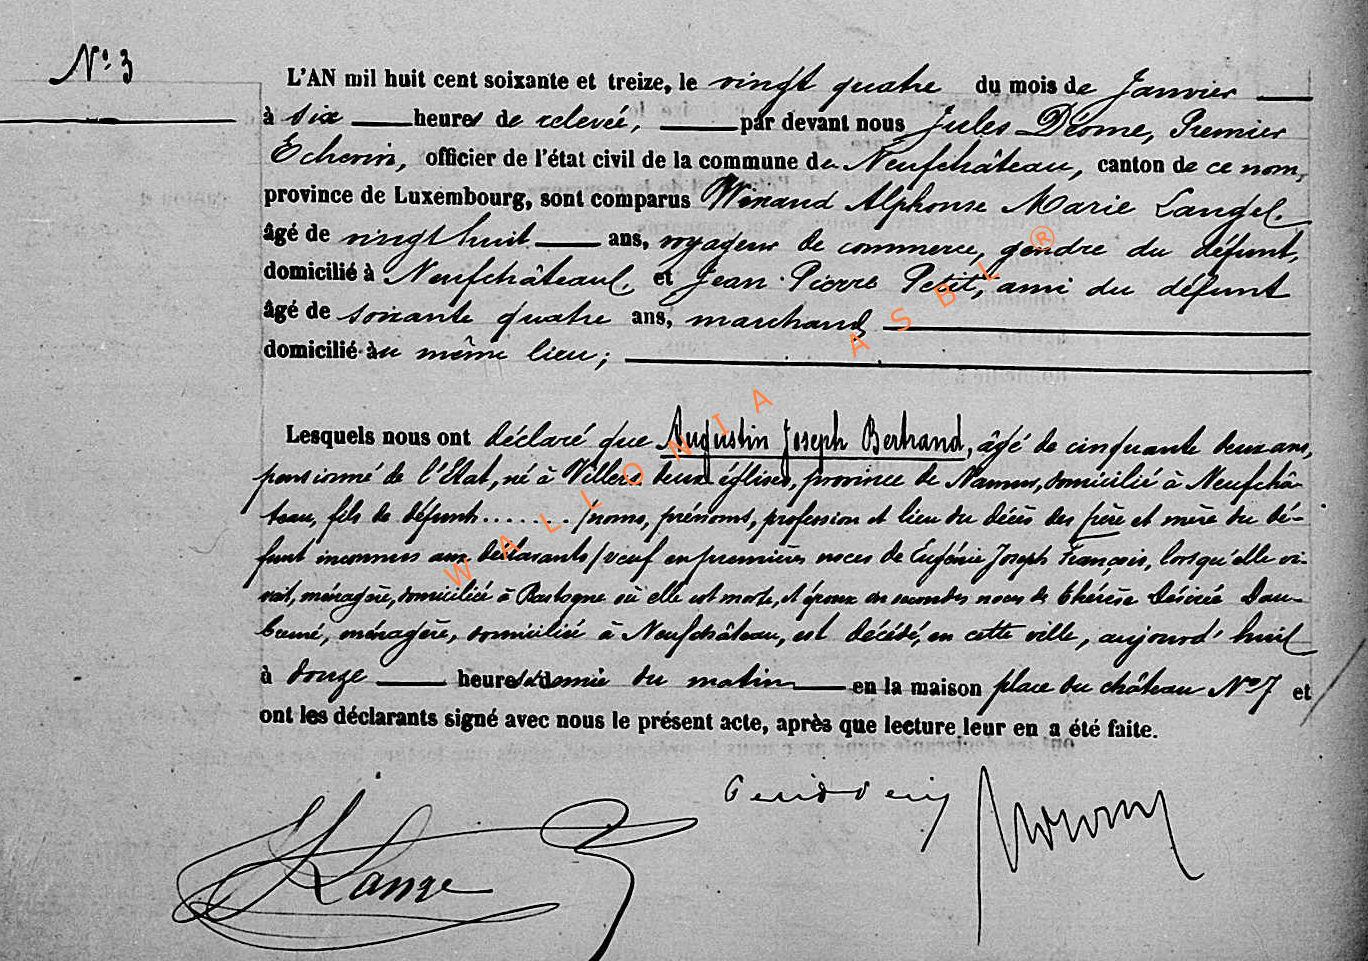 N° 3
L'AN mil huit cent soixante et treize, le vingt quatre du mois de Janvier
à six heures de relevée, par devant nous Jules Drome, Premier
Echevin, officier de l'état civil de la commune de Neufchâteau, canton de ce nom,
province de Luxembourg, sont comparus Winand Alphonse Marie Lange
âgé de vingt huit ans, voyageur de commerce, gendre du défunt,
domicilié à Neufchâteau, et Jean Pierre Petit, ami du défunt
âgé de soixante quatre ans, marchand
domicilié au même lieu;
Lesquels nous ont déclaré que Augustin Joseph Bertrand, âgé de cinquante deux ans,
pensionné de l'Etat, né à Villers deux églises, province de Namur, domicilié à Neufchâ-
teau, fils de défunts ....... (noms, prénoms, profession et lieu du décès des père et mère du dé-
funt inconnus aux déclarants) veuf en premières noces de Eugénie Joseph François, lorsqu'elle vi-
vait, ménagère, domiciliée à Bastogne où elle est morte, et époux en secondes noces de Thérèse Désirée
ménagère, domiciliée à Neufchâteau, est décédé, en cette ville, aujourd'hui
à douze heures et demie du matin en la maison place du château N° 7 et
ont les déclarants signé avec nous le présent acte, après que lecture leur en a été faite.
Lange
WALLONIA ASBL ®